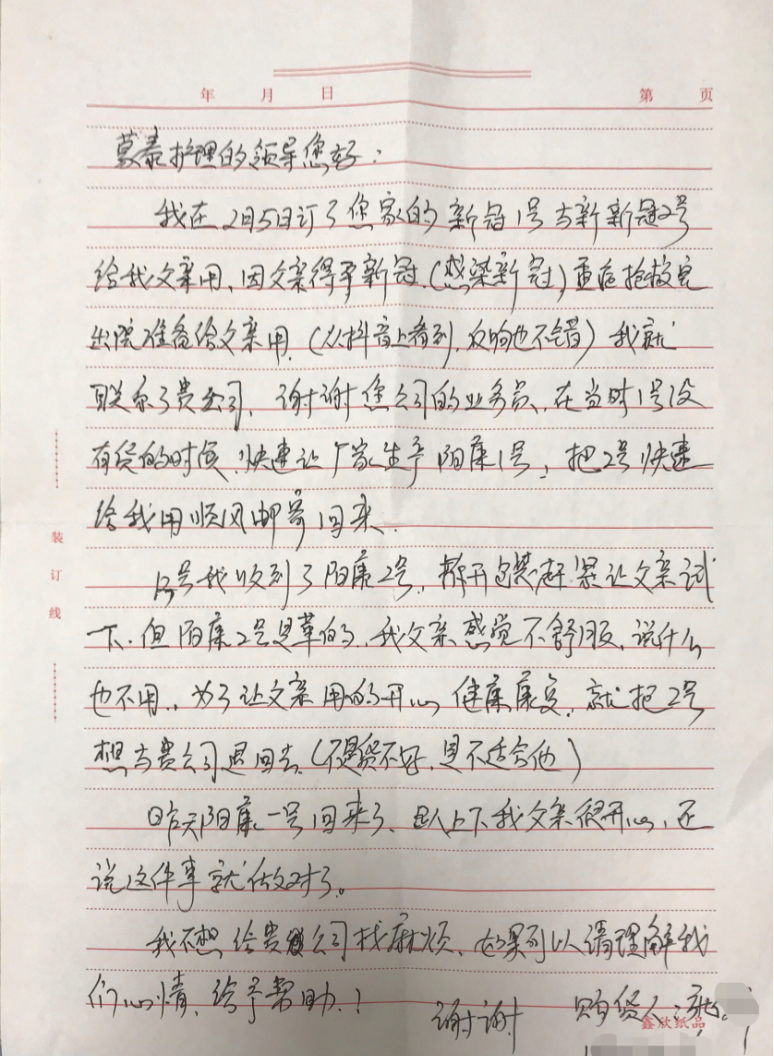 年 月 日 第 页
慕泰护理的领导您好:
我在2月5日订了您家的新冠1号与新新冠2号
给我父亲用、因父亲得平新冠.(感染新冠)重症抢救完
出院准备给父亲用.(从抖音上看到.反响也不错)我就
联系了贵公司、谢谢您公司的业务员、在当时1号没
有货的时候.快速让厂家生产阳康1号;把2号快速
给我用顺风邮寄回来.
13号我收到了阳康2号、拆开包装赶紧让父亲试
下、但阳康2号是革的、我父亲感觉不舒服、说什么
也不用.、为了让父亲用的开心健康康复、就把2号
想与贵公司退回去.(不是货不好.是不适合他)
昨天阳康一号回来了、 上下我父亲很开心、还
说这件事就做对了。
我不想给贵公司找麻烦、如果可以请理解我
们心情、给予帮助.?
谢谢 购货人:
装
订
线
鑫欣纸品